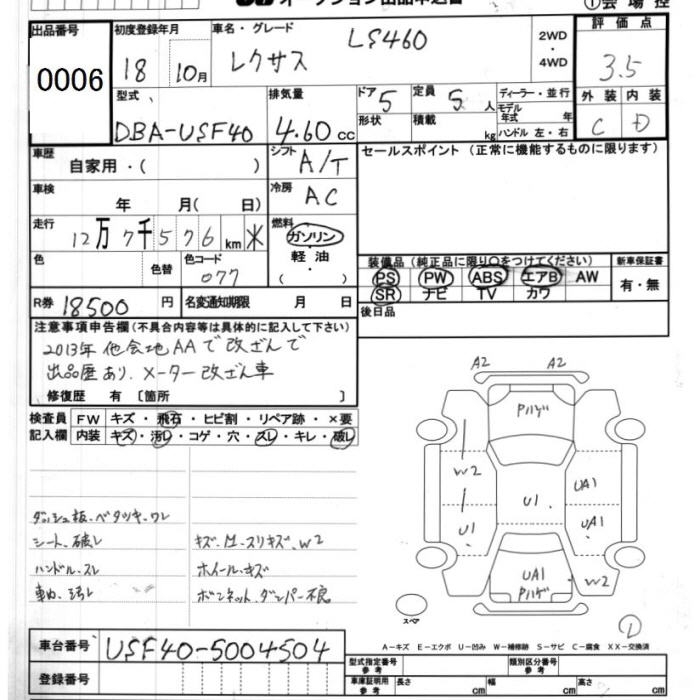 オークション出品申込書
①会場控
出品番号 0006
初度登録年月 18 10月
車名・グレード
レクサス LS460
2WD・4WD
評価点 3.5
外装 内装
C D
型式 DBA-USF40
排気量 4.60 cc
ドア 5 形状
定員 5人 積載 kg
ディーラー・並行
モデル年式 年
ハンドル 左・右
車歴 自家用・( )
シフト A/T
セールスポイント (正常に機能するものに限ります)
車検 年 月( 日)
冷房 AC
走行 12万7千576km ※
燃料 ガソリン
軽油
( ・ )
色 色替 色コード 077
装備品 (純正品に限り○をつけてください)
PS PW ABS エアB AW
SR ナビ TV カワ
新車保証書
有・無
R券 18500円
名変通知期限 月 日
後日品
注意事項申告欄 (不具合内容等は具体的に記入して下さい)
2013年 他会地AAで改ざんで
出品歴あり、メーター改ざん車
修復歴 有 [箇所 ]
検査員 FW キズ・飛石・ヒビ割・リペア跡・×要
記入欄 内装 キズ・汚レ・コゲ・穴・スレ・キレ・破レ
ダッシュ板、ベタツキ、ワレ
シート、破レ
キズ、M、スリキズ、W2
ハンドル、スレ
ホイール、キズ
車内、汚レ
ボンネット、ダンパー不良
A2 A2
Pハゲ
W2 UA1
U1 U1 UA1
UA1
Pハゲ W2
スペア
A-キズ E-エクボ U-凹み W-補修跡 S-サビ C-腐食 XX-交換済
車台番号 USF40-5004504
登録番号
型式指定番号 参考
類別区分番号 参考
車庫証明用 参考 長さ cm 幅 cm 高さ cm